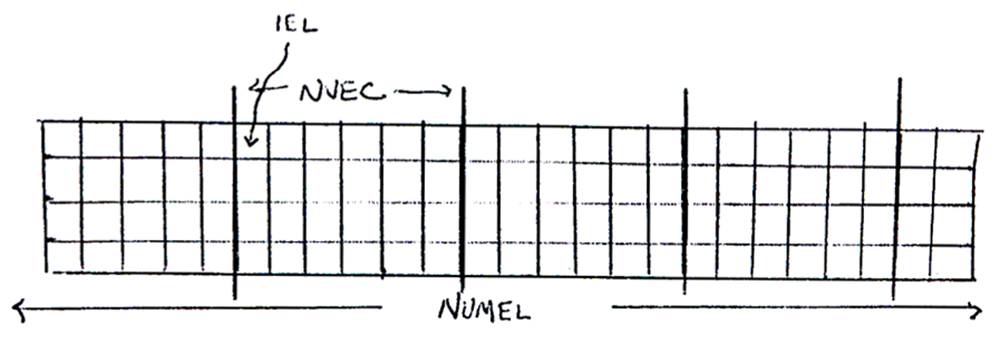 IEL
NVEC
NUMEL